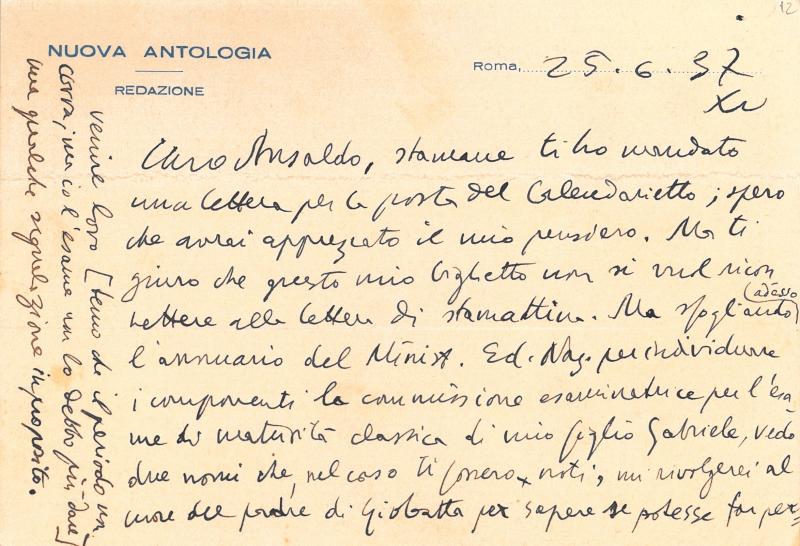 12
NUOVA ANTOLOGIA
REDAZIONE
Roma, 25.6.37
XV
Caro Ansaldo, stamane ti ho mandato
una lettera per la posta del Calendarietto; spero
che avrai apprezzato il mio pensiero. Ma ti
giuro che questo mio biglietto non si vuol ricon
nettere alla lettera di stamattina. Ma sfogliando (adesso)
l'annuario del Minist. Ed. Naz. per individuare
i componenti la commissione esaminatrice per l'esa-
me di maturità classica di mio figlio Gabriele, vedo
due nomi che, nel caso ti fossero noti, mi rivolgerei al
cuore del padre di Giobatta per sapere se potesse far per=
venire loro [temo che il periodo un
corra, ma io l'esame non lo debbo più dare]
una qualche segnalazione in proposito.